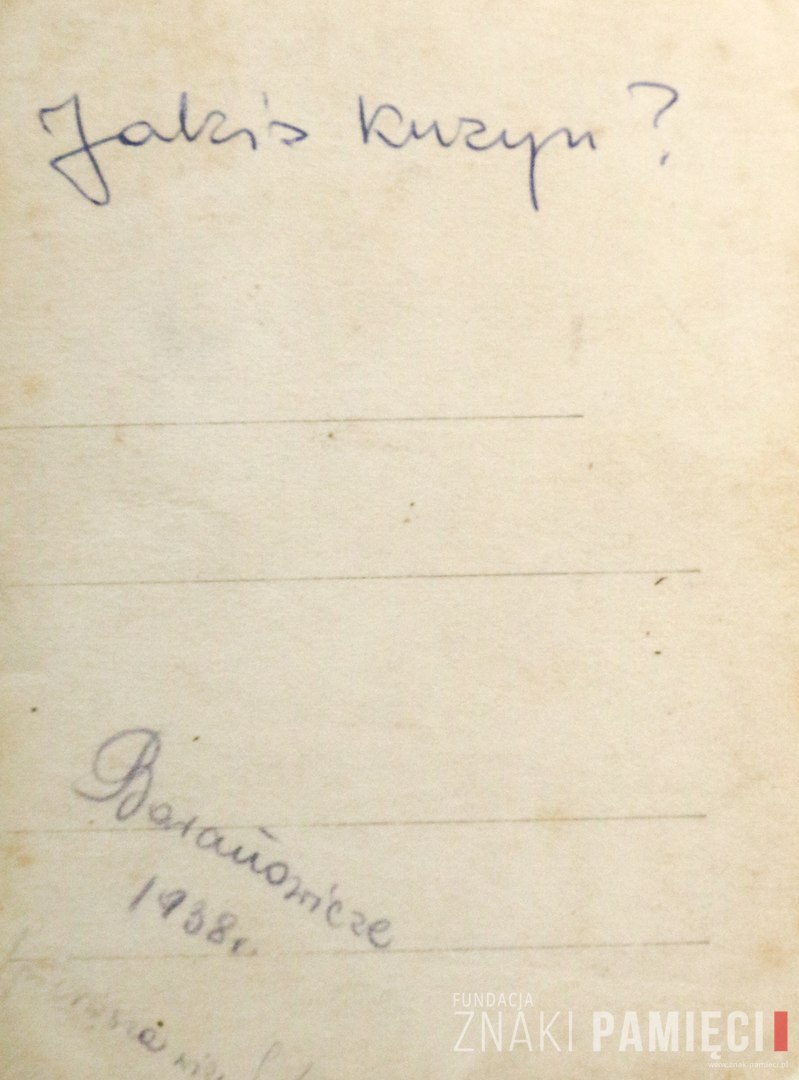 Jakiś kuzyn?
Baranowicze
1938 r.
FUNDACJA
ZNAKI PAMIĘCI
www.znaki-pamieci.pl